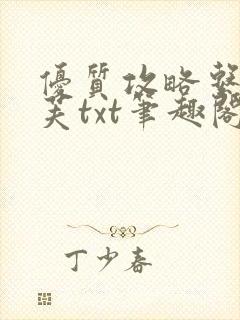 優質攻略整
芙txt筆趣閣
丁少春